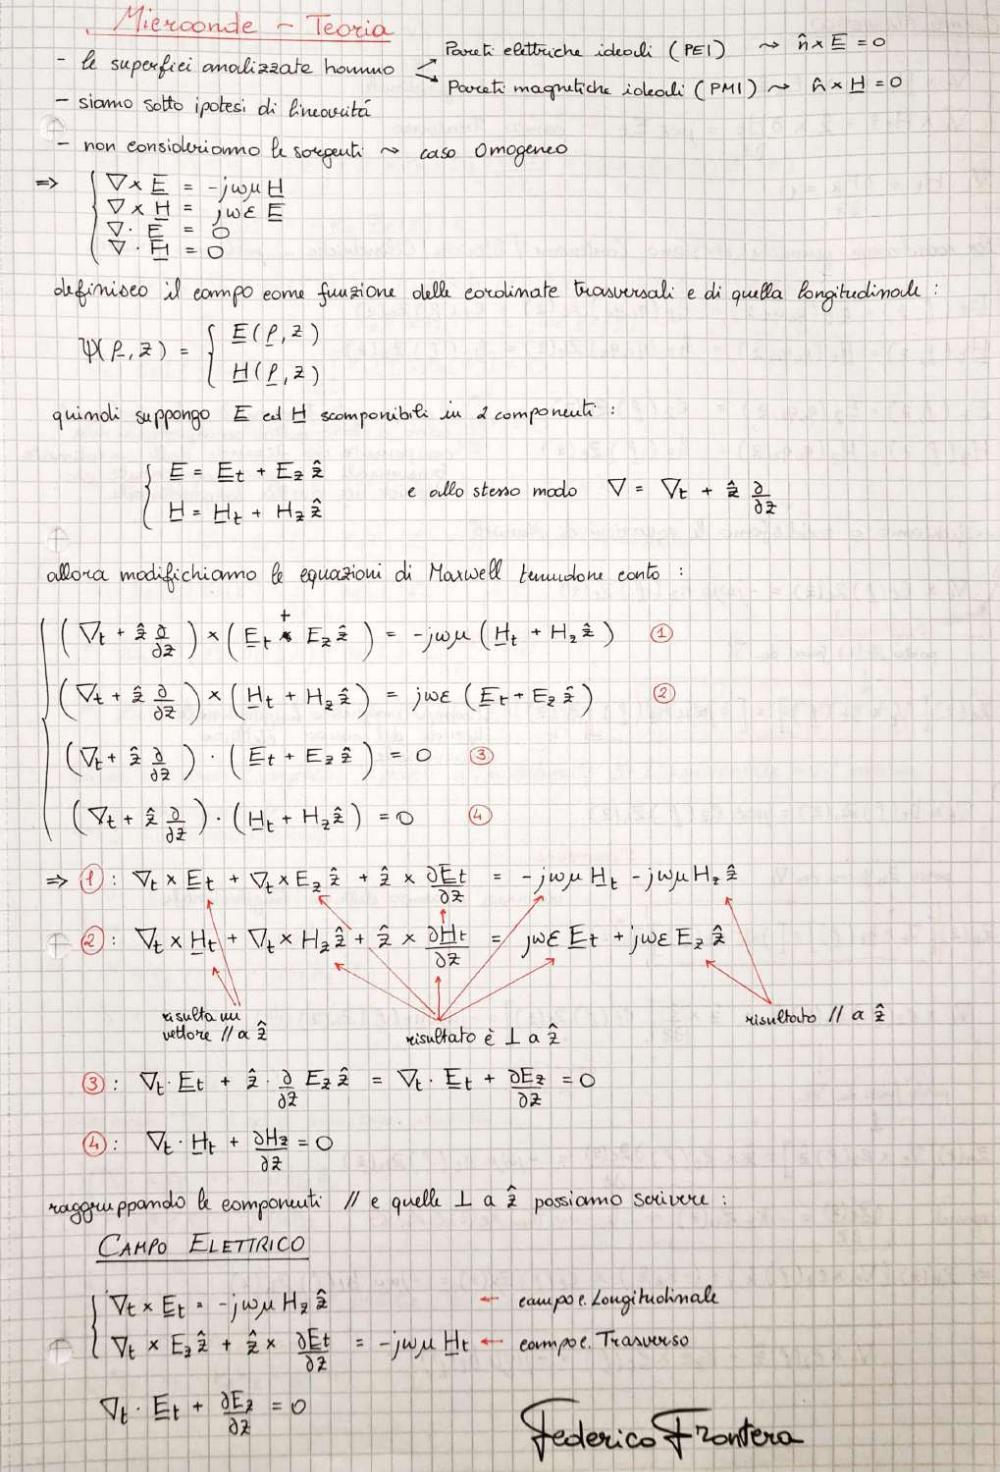 Microonde - Teoria
- le superfici analizzate hanno
Pareti elettriche ideali (PEI) ~> n̂ × E = 0
Pareti magnetiche ideali (PMI) ~> n̂ × H = 0
- siamo sotto ipotesi di linearità
- non consideriamo le sorgenti ~> caso omogeneo
=> { ∇ × E = -jωμ H
∇ × H = jωε E
∇ · E = 0
∇ · H = 0
definisco il campo come funzione delle cordinate trasversali e di quella longitudinale :
ψ(ρ, z) = { E(ρ, z)
H(ρ, z)
quindi suppongo E ed H scomponibili in 2 componenti :
{ E = Et + Ez ẑ
H = Ht + Hz ẑ
e allo stesso modo ∇ = ∇t + ẑ ∂/∂z
allora modifichiamo le equazioni di Maxwell tenendone conto :
(∇t + ẑ ∂/∂z) × (Et + Ez ẑ) = -jωμ (Ht + Hz ẑ) ①
(∇t + ẑ ∂/∂z) × (Ht + Hz ẑ) = jωε (Et + Ez ẑ) ②
(∇t + ẑ ∂/∂z) · (Et + Ez ẑ) = 0 ③
(∇t + ẑ ∂/∂z) · (Ht + Hz ẑ) = 0 ④
=> ①: ∇t × Et + ∇t × Ez ẑ + ẑ × ∂Et/∂z = -jωμ Ht - jωμ Hz ẑ
②: ∇t × Ht + ∇t × Hz ẑ + ẑ × ∂Ht/∂z = jωε Et + jωε Ez ẑ
risulta un
vettore // a ẑ
risultato è ⊥ a ẑ
risultato // a ẑ
③: ∇t · Et + ẑ · ∂/∂z Ez ẑ = ∇t · Et + ∂Ez/∂z = 0
④: ∇t · Ht + ∂Hz/∂z = 0
raggruppando le componenti // e quelle ⊥ a ẑ possiamo scrivere :
CAMPO ELETTRICO
{ ∇t × Et = -jωμ Hz ẑ ← campo e. Longitudinale
∇t × Ez ẑ + ẑ × ∂Et/∂z = -jωμ Ht ← campo e. Trasverso
∇t · Et + ∂Ez/∂z = 0
Federico Frontera